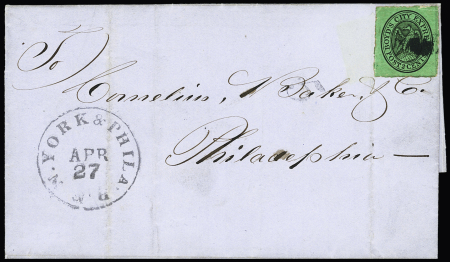 BOYD'S CITY EXPRESS
2 CENTS
To
Cornelius, Baker & Co.
Philadelphia —
N. YORK & PHILA.
APR
27
R.R.